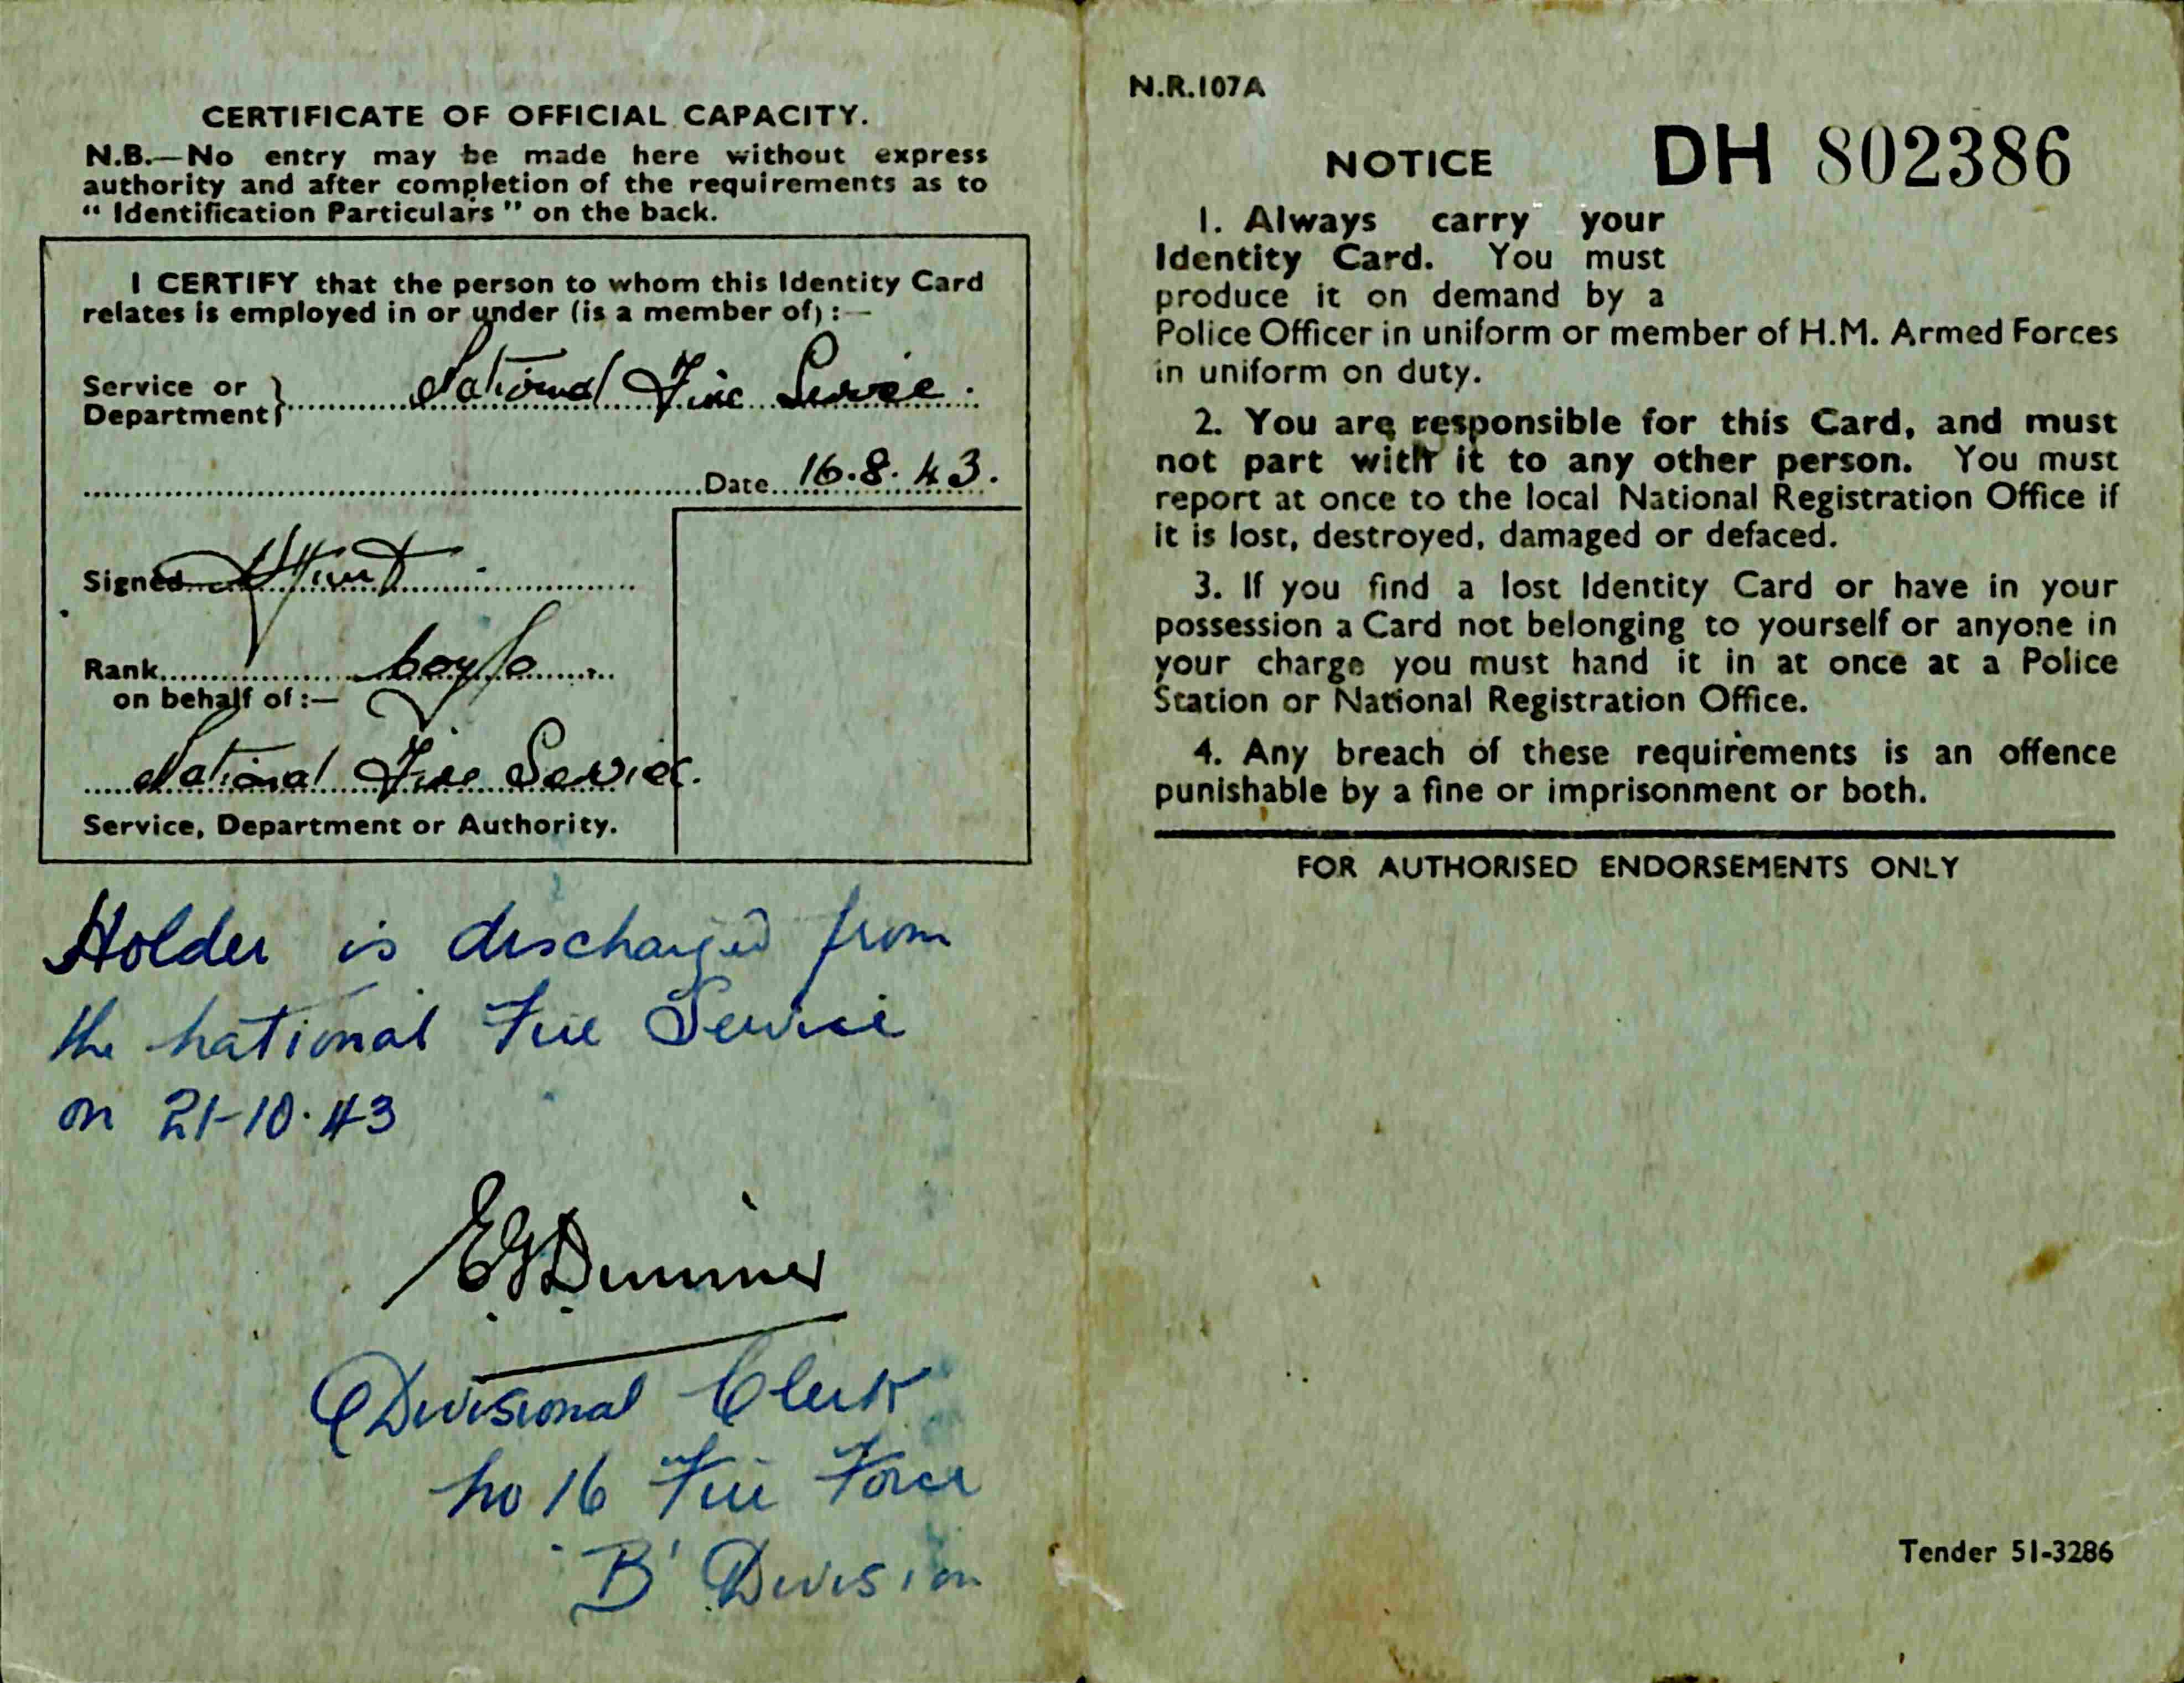 CERTIFICATE OF OFFICIAL CAPACITY.
N.B.—No entry may be made here without express
authority and after completion of the requirements as to
“ Identification Particulars ” on the back.
I CERTIFY that the person to whom this Identity Card
relates is employed in or under (is a member of) :—
Service or
Department } National Fire Service.
Date 16.8.43.
Signed
Rank
on behalf of :—
National Fire Service.
Service, Department or Authority.
Holder is discharged from
the national Fire Service
on 21-10-43
Divisional Clerk
No 16 Fire Force
'B' Division
N.R.107A
NOTICE DH 802386
1. Always carry your
Identity Card. You must
produce it on demand by a
Police Officer in uniform or member of H.M. Armed Forces
in uniform on duty.
2. You are responsible for this Card, and must
not part with it to any other person. You must
report at once to the local National Registration Office if
it is lost, destroyed, damaged or defaced.
3. If you find a lost Identity Card or have in your
possession a Card not belonging to yourself or anyone in
your charge you must hand it in at once at a Police
Station or National Registration Office.
4. Any breach of these requirements is an offence
punishable by a fine or imprisonment or both.
FOR AUTHORISED ENDORSEMENTS ONLY
Tender 51-3286